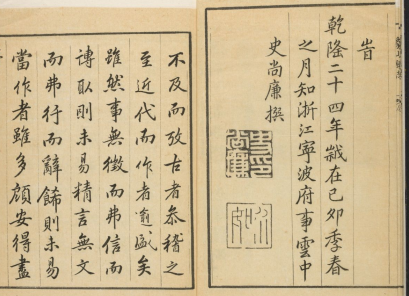 旹
乾隆二十四年嵗在己卯季春
之月知浙江寧波府事雲中
史尚廉撰
史印尚廉
不及而攷古者叅稽之
至近代而作者盛矣
雖然事無徵而弗信而
博取則未易精言無文
而弗行而辭餙則未易
當作者雖多顧安得盡